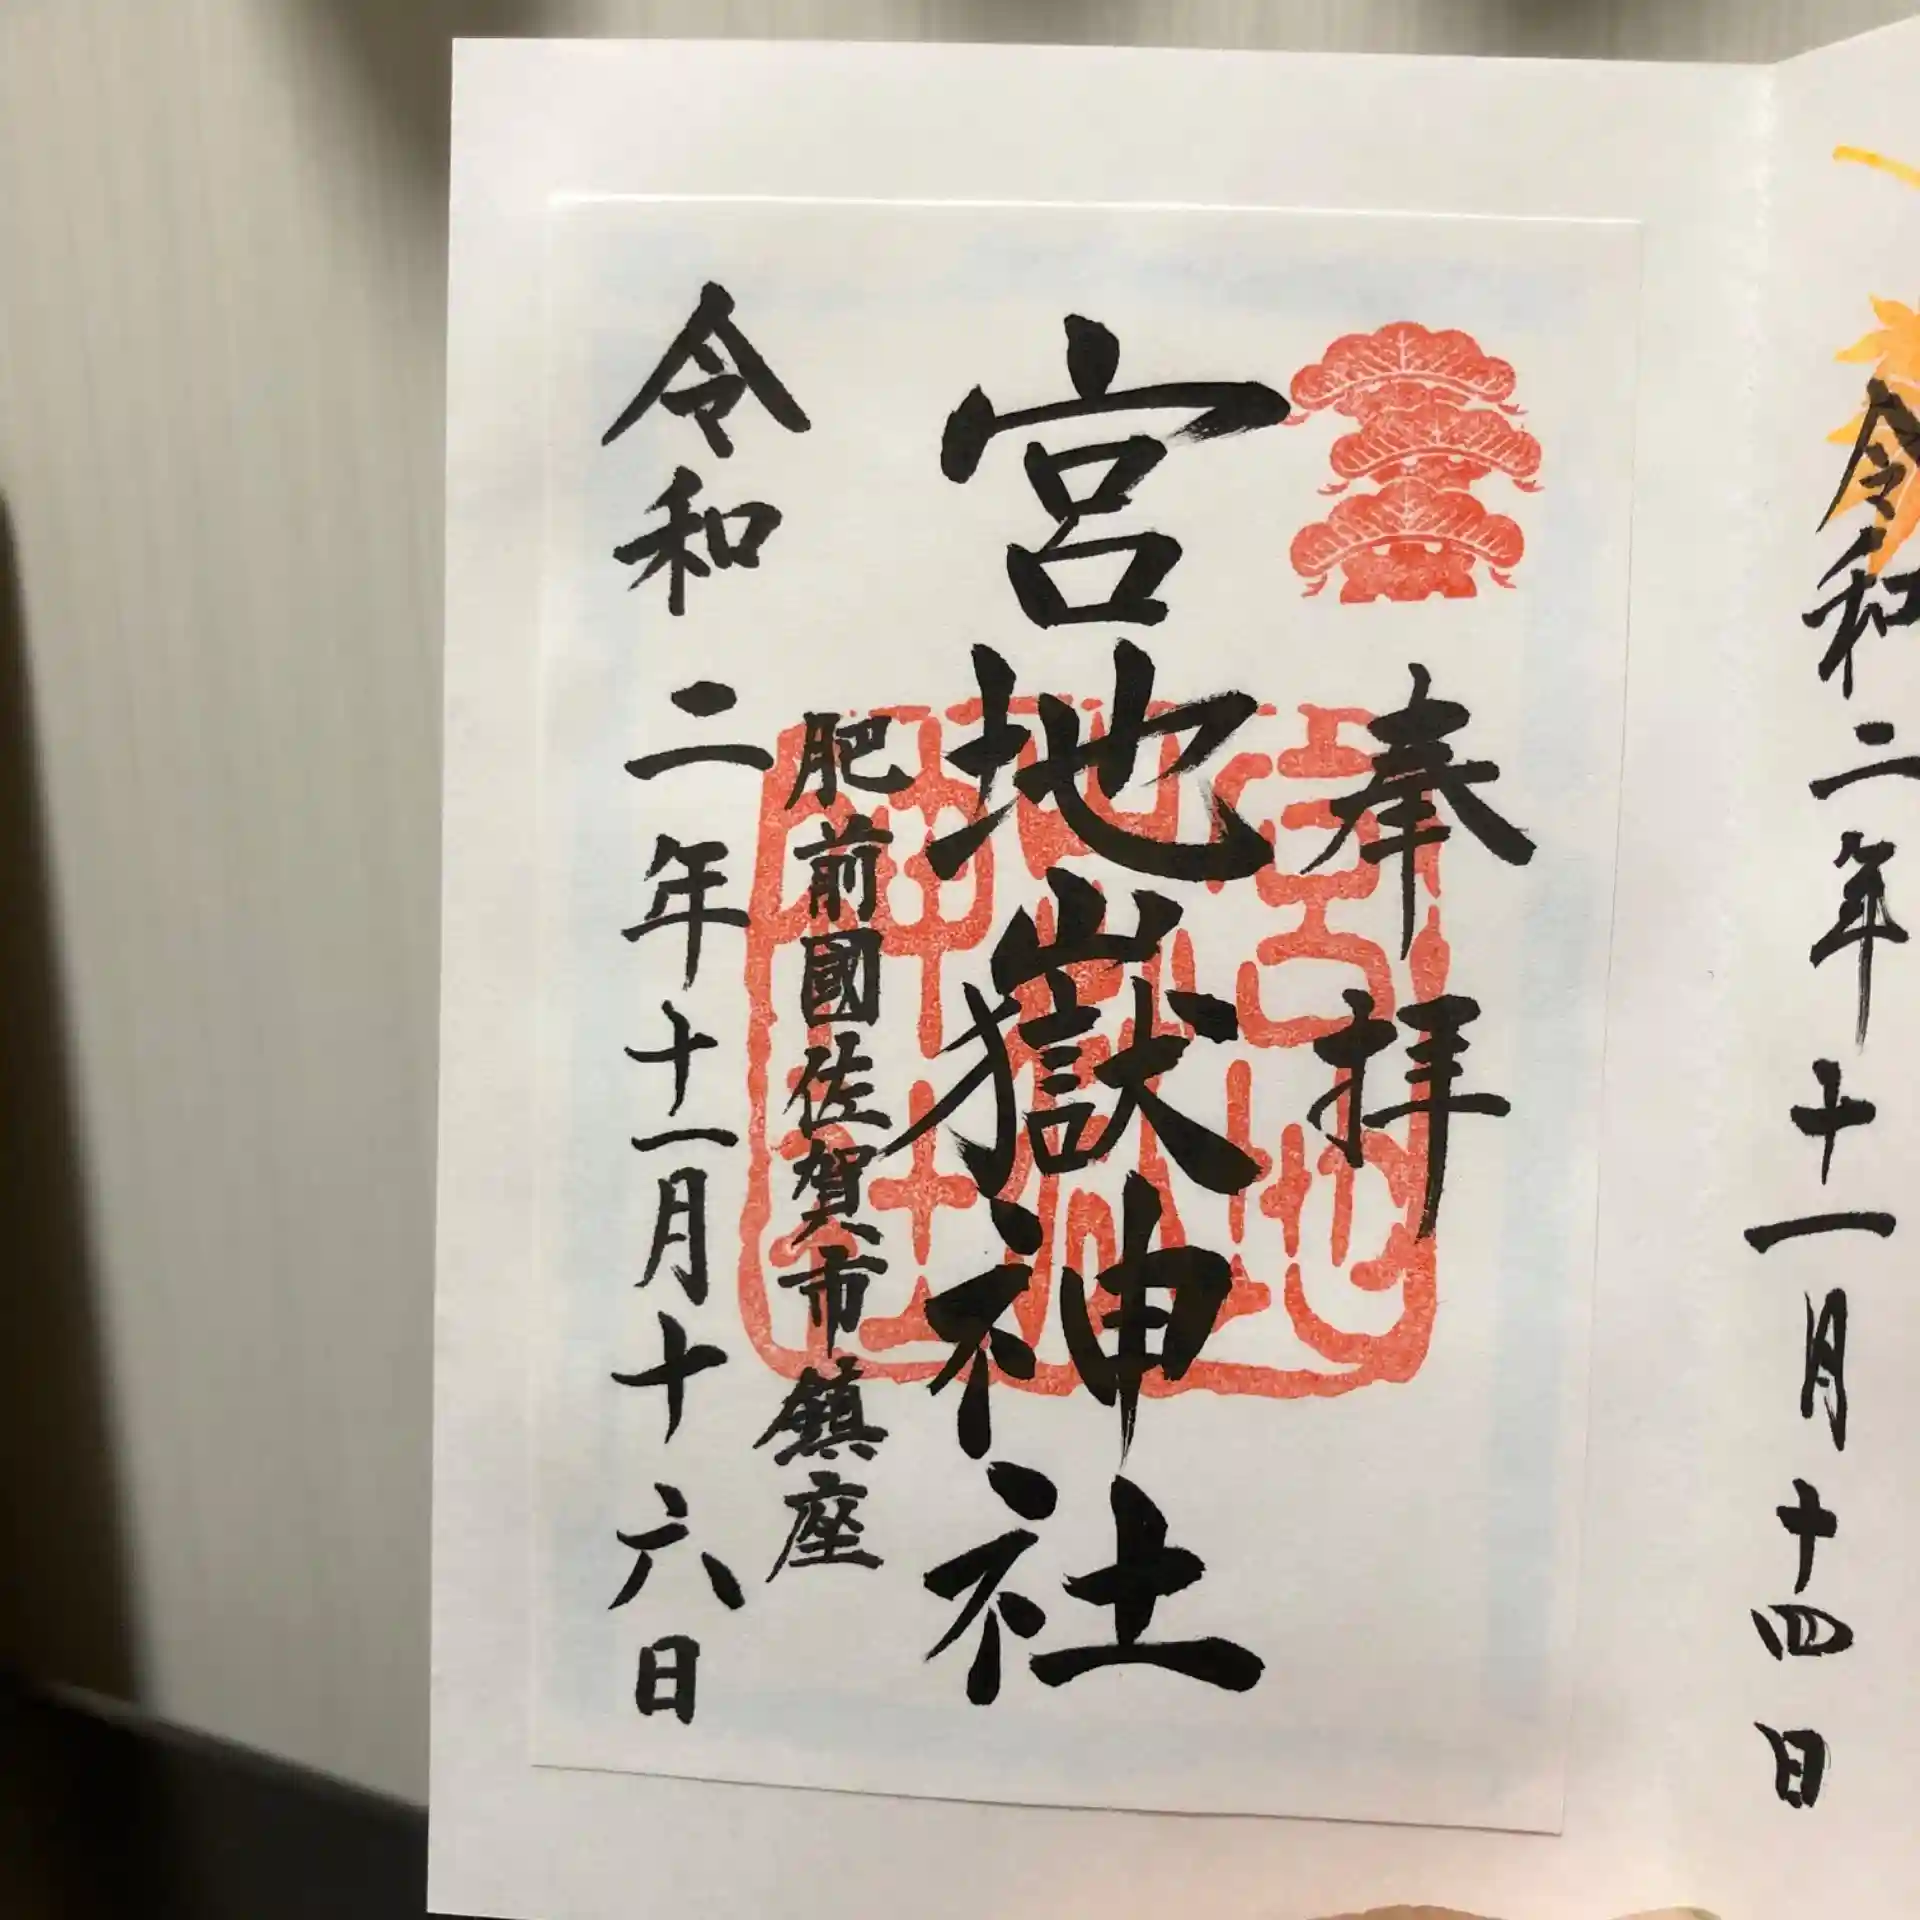 令和二年十一月十四日
奉拝
宮地嶽神社
肥前國佐賀市鎮座
令和二年十一月十六日